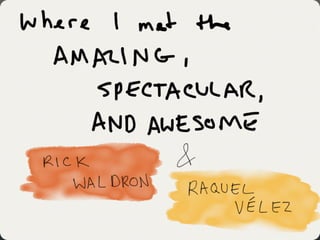 Where I met the
AMAZING,
SPECTACULAR,
AND AWESOME
RICK
WALDRON
&
RAQUEL
VÉLEZ